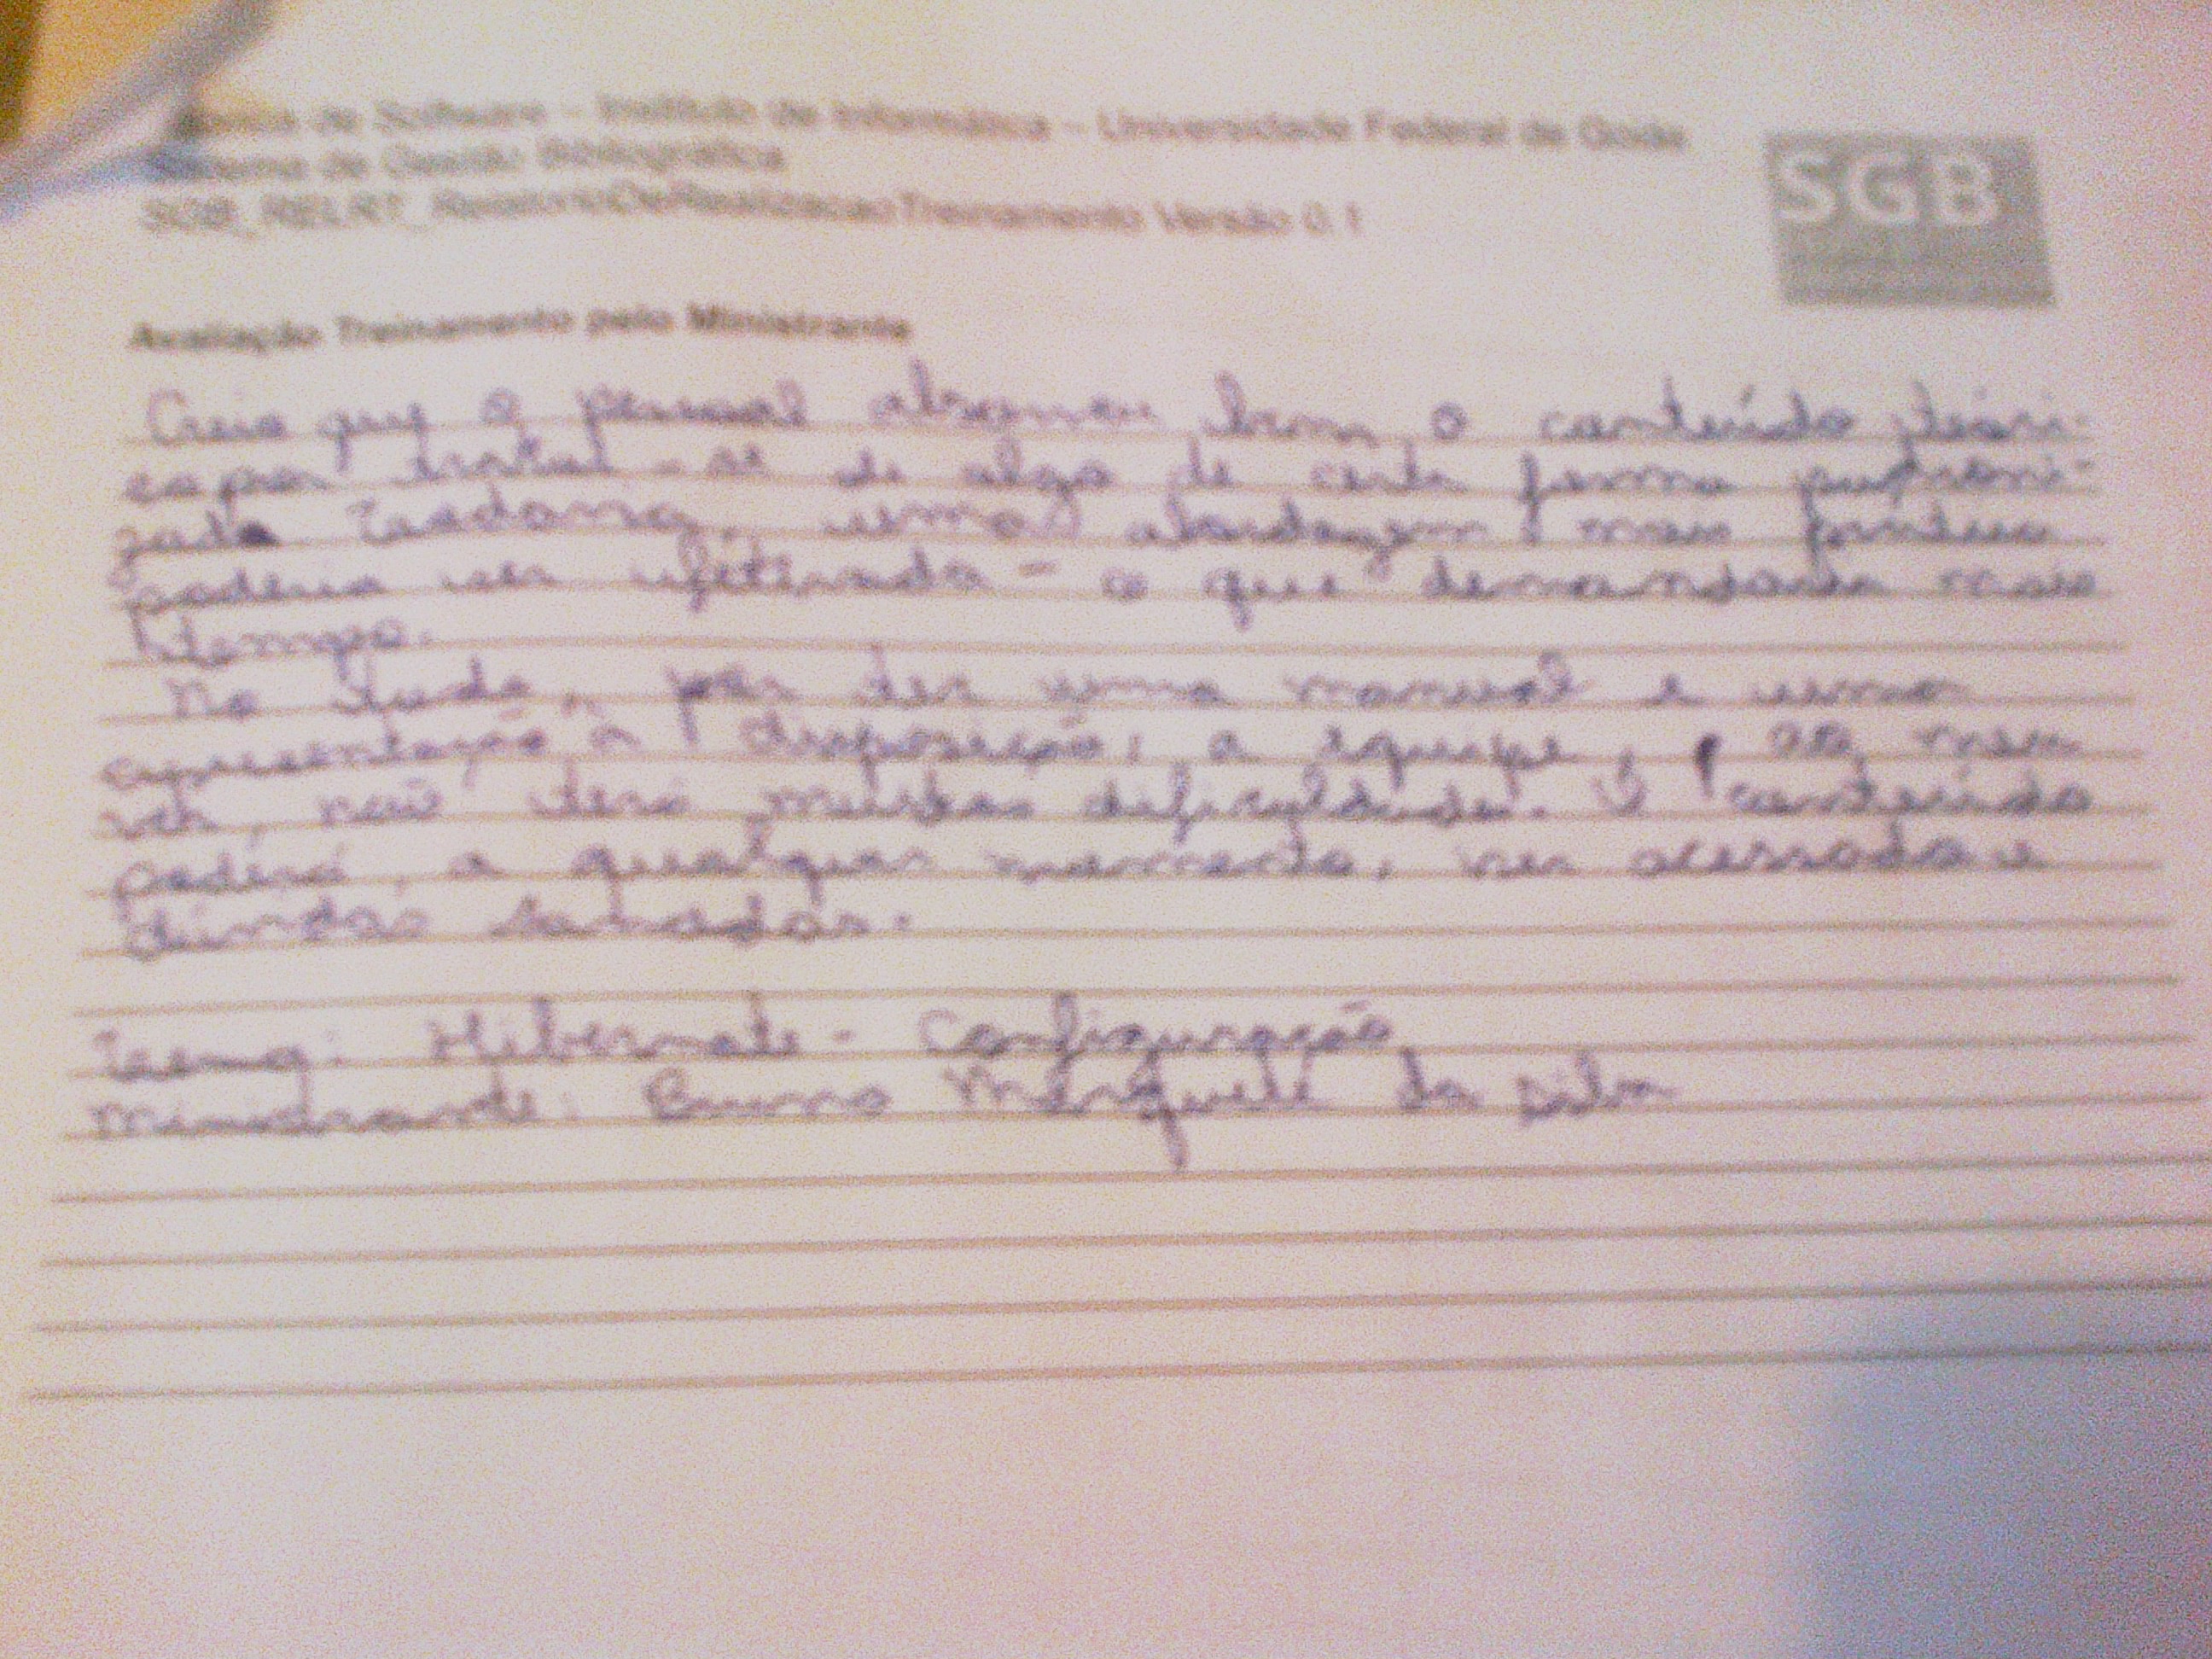 de Software – Instituto de Informática – Universidade Federal de Goiás
Sistema de Gestão Bibliográfica
SGB_RELRT_RelatorioDeRealizacaoTreinamento Versão 0.1
SGB
Avaliação Treinamento pelo Ministrante
Creio que o pessoal absorveu bem o conteúdo teóri-
co por tratar-se de algo de certa forma padroni-
zado. Todavia, uma abordagem mais prática
poderia ser efetivada - o que demandaria mais
tempo.
No tudo, por ter uma manual e uma
apresentação à disposição, a equipe, ao meu
ver, não terá muitas dificuldade. O conteúdo
poderá, a qualquer momento, ser acessado e
dúvidas sanadas.
Tema: Hibernate - Configuração
Ministrante: Bruno da Silva